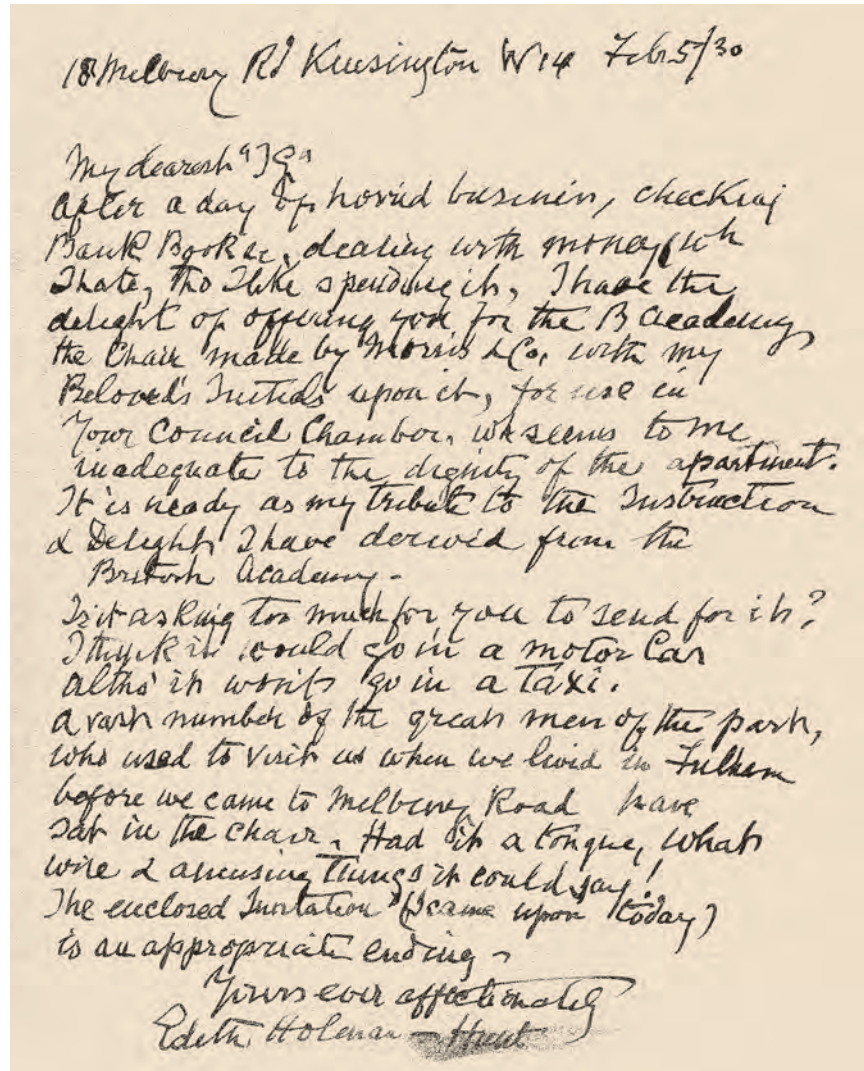 18 Melbury Rd Kensington W 14 Feb 5/30
My dearest "I G"
After a day of horrid business, checking
Bank Books &c, dealing with money (wh
I hate, tho I like spending it, I have the
delight of offering you for the B Academy,
the Chair made by Morris & Co, with my
Beloved's Initials upon it, for use in
Your Council Chamber, wh seems to me
inadequate to the dignity of the apartment.
It is ready as my tribute to the Instruction
& Delight I have derived from the
British Academy -
Is it asking too much for you to send for it?
I think it would go in a motor Car
altho' it won't go in a Taxi.
A vast number of the great men of the past,
who used to visit us when we lived in Fulham
before we came to Melbury Road have
sat in the chair. Had it a tongue, what
wise & amusing things it could say!
The enclosed Invitation (I came upon today)
is an appropriate ending -
Yours ever affectionately
Edith Holman-Hunt